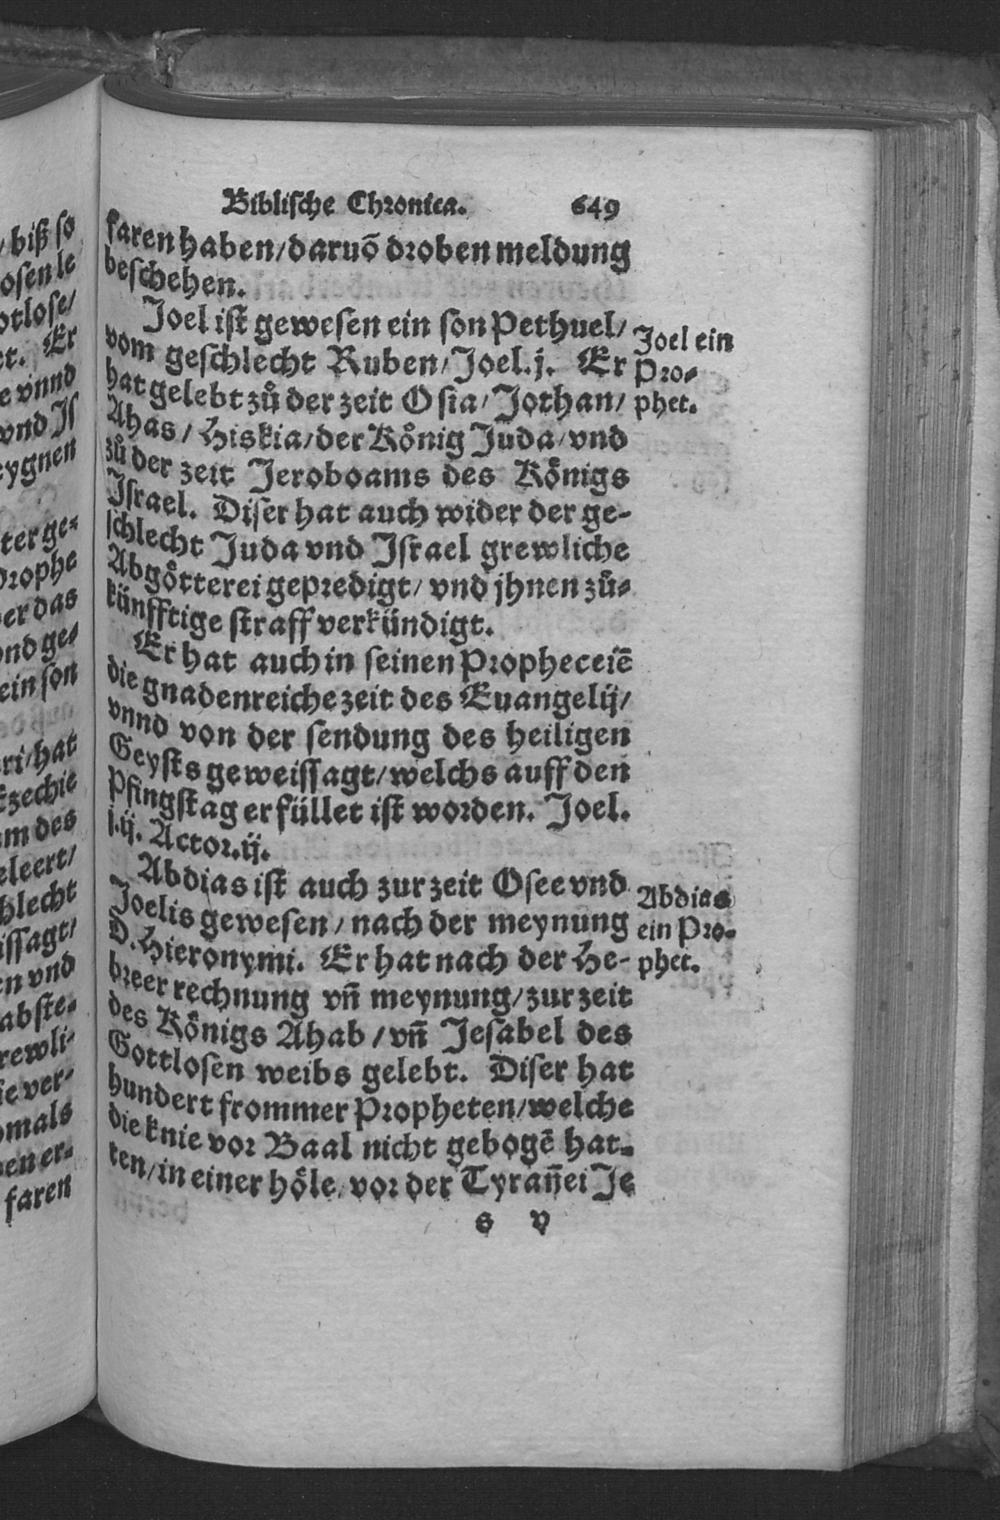 Biblische Chronica. 649
faren haben/daruõ droben meldung
beschehen.
Joel ist gewesen ein son Pethuel/
vom geschlecht Ruben/Joel.j. Er
hat gelebt zů der zeit Osia/Jothan/
Ahas/Hiskia/der Kőnig Juda/vnd
zů der zeit Jeroboams des Kőnigs
Israel. Diser hat auch wider der ge-
schlecht Juda vnd Israel grewliche
Abgőtterei gepredigt/vnd jhnen zů-
künfftige straff verkündigt.
Er hat auch in seinen Propheceiẽ
die gnadenreiche zeit des Euangelij/
vnnd von der sendung des heiligen
Geysts geweissagt/welchs auff den
Pfingstag erfüllet ist worden. Joel.
j.ij. Actor.ij.
Abdias ist auch zur zeit Osee vnd
Joelis gewesen/nach der meynung
D. Hieronymi. Er hat nach der He-
breer rechnung vñ meynung/zur zeit
des Kőnigs Ahab/vñ Jesabel des
Gottlosen weibs gelebt. Diser hat
hundert frommer Propheten/welche
die knie vor Baal nicht gebogẽ hat-
ten/in einer hőle/vor der Tyrañei Je
s v
Joel ein
Pro-
phet.
Abdias
ein Pro-
phet.
/biß so
osen le
otlose/
et. Er
e vnnd
vnd Is
eygnen
ter ge-
Prophe
er das
ond ge-
ein son
ri/hat
Ezechie
am des
eleert/
hlecht
issagt/
en vnd
abste-
rewli-
ie ver-
omals
en er-
faren